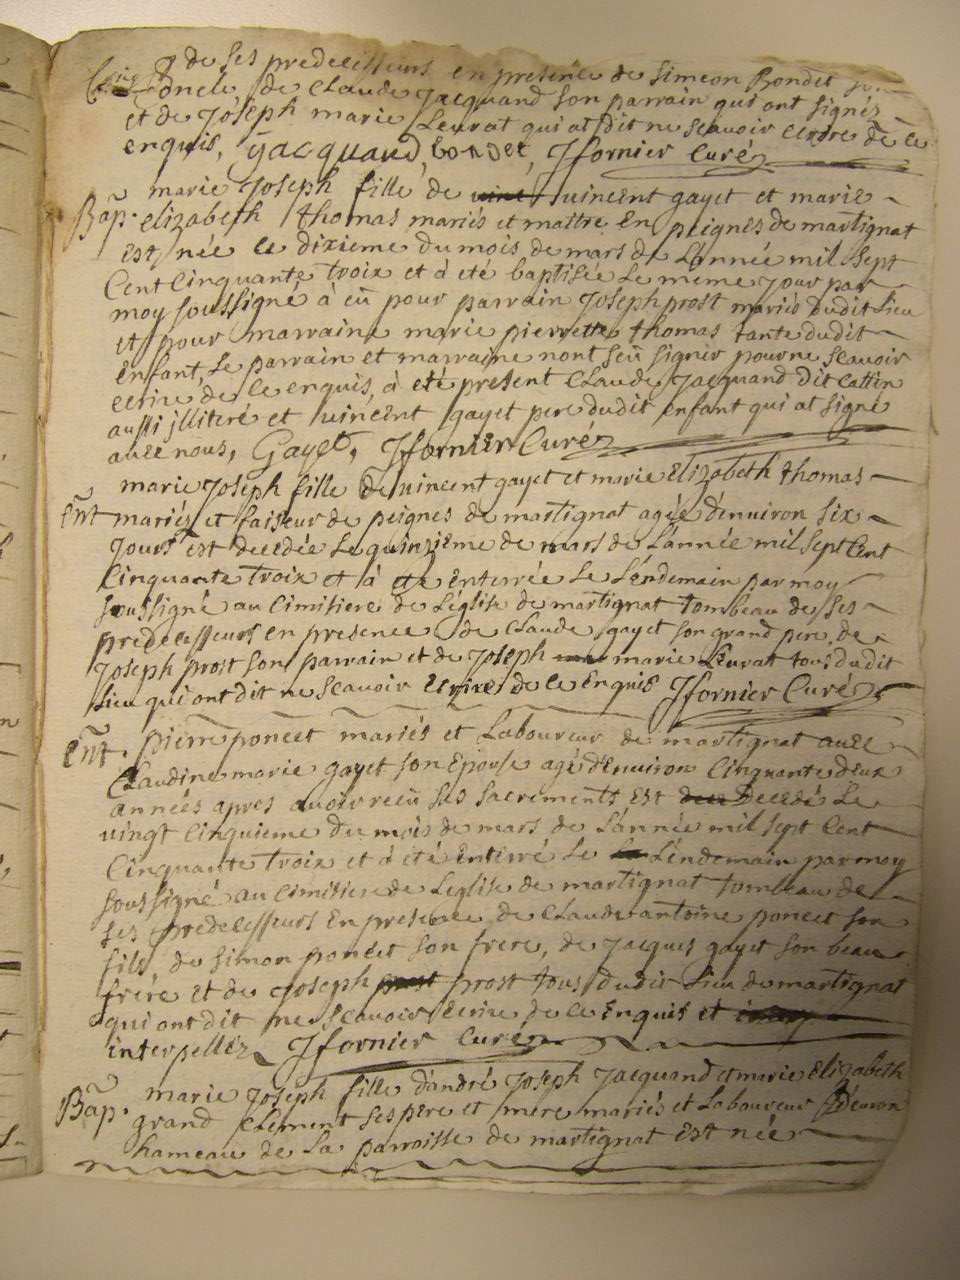 de ses predecesseurs en presence de simeon Bondet son
oncle, de claude Jacquand son parrain qui ont signés
et de Joseph marie Leurat qui at dit ne scavoir ecrire de ce
enquis, yacquand, bondet, Jfornier Curé
marie Joseph fille de vincent gayet et marie
Bap. elizabeth thomas mariés et maitre en peignes de martignat
est née le dixieme du mois de mars de L'année mil sept
Cent Cinquante troix et à eté baptisée Le meme jour par
moy soussigné à eü pour parrain Joseph prost mariés dudit Lieu
et pour marraine marie pierrette thomas tante dudit
enfant, Le parrain et marraine n'ont seü signer pour ne scavoir
ecrire de ce enquis, à eté present claude Jacquand dit Cattin
aussi jlliteré et vincent gayet pere dudit enfant qui at signé
avec nous, Gayet, Jfornier Curé
marie Joseph fille de vincent gayet et marie Elizabeth thomas
Ent mariés et faiseur de peignes de martignat agée d'environ six
Jours est decedée Le quinzieme de mars de L'année mil sept Cent
Cinquante troix et à eté enterrée Le Lendemain par moy
soussigné au Cimitiere de L'eglise de martignat tombeau de ses
predecesseurs en presence de claude gayet son grand pere, de
Joseph prost son parrain et de Joseph marie Leurat tous dudit
Lieu qui ont dit ne scavoir ecrire de ce enquis Jfornier Curé
Ent. pierre poncet mariés et Laboureur de martignat avec
Claudine marie gayet son epouse agé d'environ Cinquante deux
années apres avoir receü ses sacrements est decedé Le
vingt Cinquieme du mois de mars de L'année mil sept Cent
Cinquante troix et à eté enterré Le Lendemain par moy
soussigné au Cimitiere de L'eglise de martignat tombeau de
ses predecesseurs en presence de claude antoine poncet son
fils, de simon poncet son frere, de Jacques gayet son beau
frere et de Joseph prost tous dudit Lieu de martignat
qui ont dit ne scavoir ecrire de ce enquis et
interpellez Jfornier Curé
marie Joseph fille d'andré Joseph Jacquand et marie Elizabeth
Bap. grand Clement ses pere et mere mariés et Laboureur d'evron
hameau de La parroisse de martignat est née